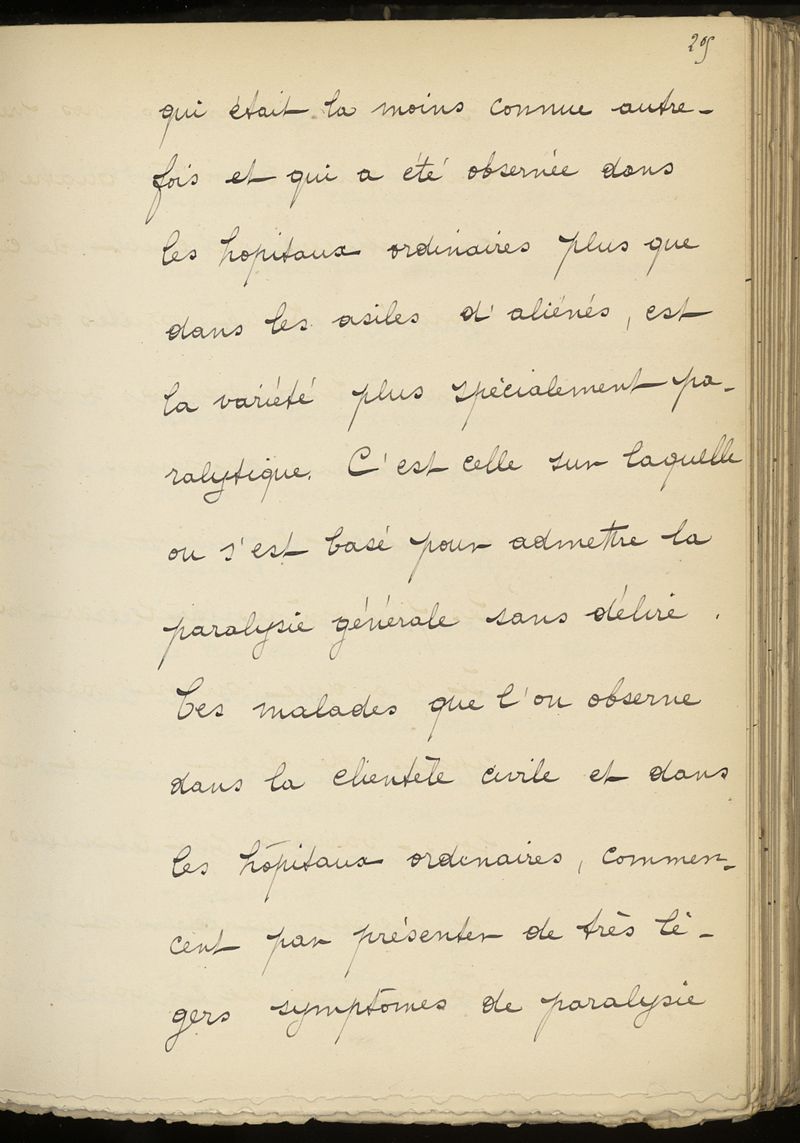 205
qui était la moins connue autre-
fois et qui a été observée dans
les hopitaux ordinaires plus que
dans les asiles d'aliénés, est
la variété plus spécialement pa-
ralytique. C'est celle sur laquelle
on s'est basé pour admettre la
paralysie générale sans délire.
Ces malades que l'on observe
dans la clientèle civile et dans
les hôpitaux ordinaires, commen-
cent par présenter de très lé-
gers symptômes de paralysie